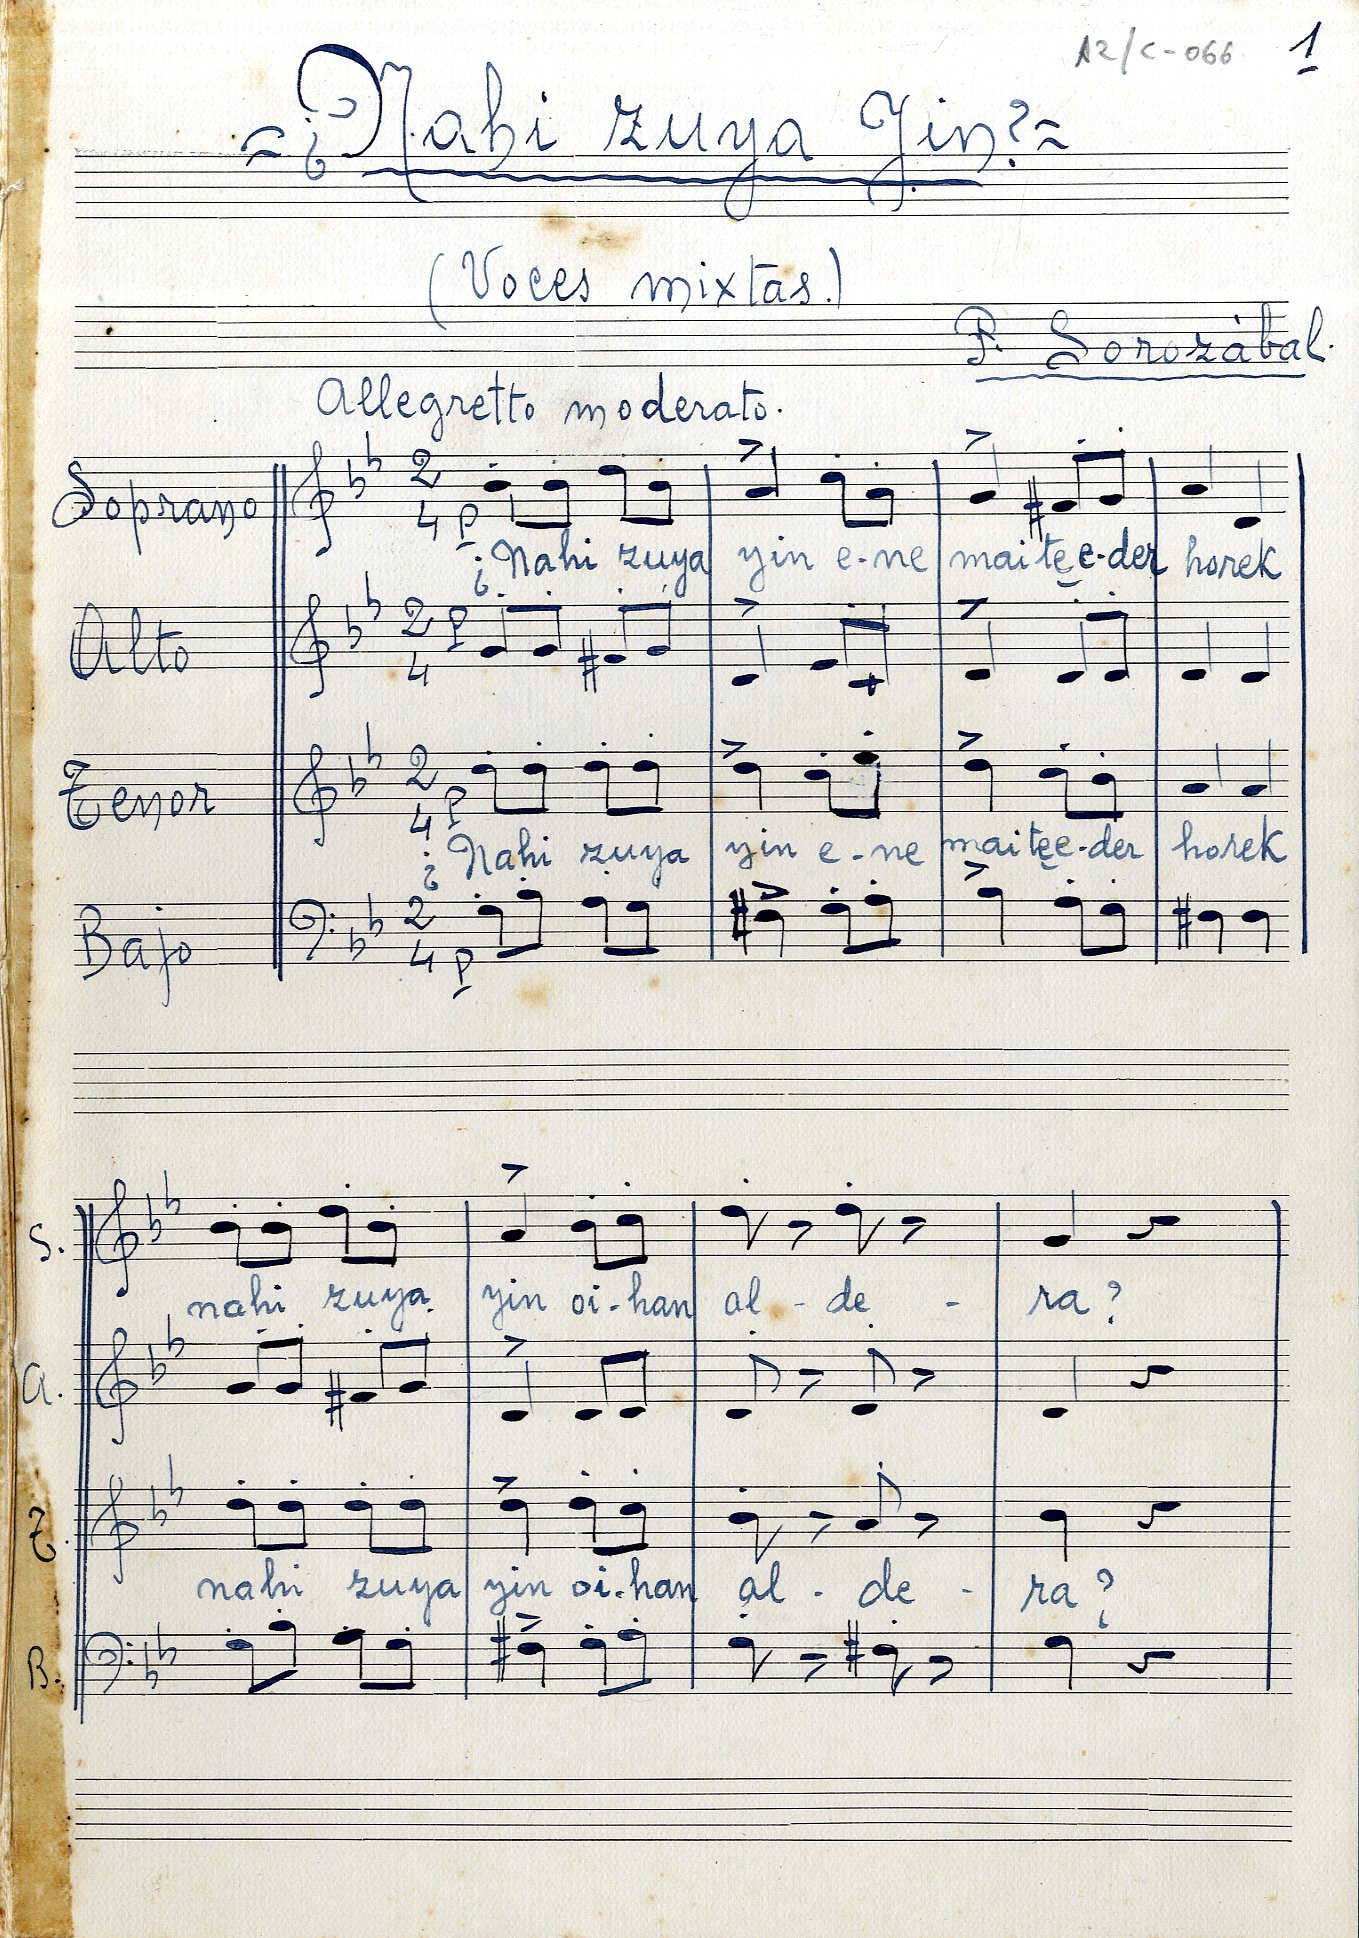 A2/C-066 1
=¿Nahi zuya Yin?=
(Voces mixtas.)
P. Sorozábal.
Allegretto moderato.
Soprano 2 4 p
¿Nahi zuya yin e-ne maite e-der horek
Alto 2 4 p
Tenor 2 4 p
¿Nahi zuya yin e-ne maite e-der horek
Bajo 2 4 p
S.
nahi zuya yin oi-han al-de-ra?
A.
T.
nahi zuya yin oi-han al-de-ra?
B.